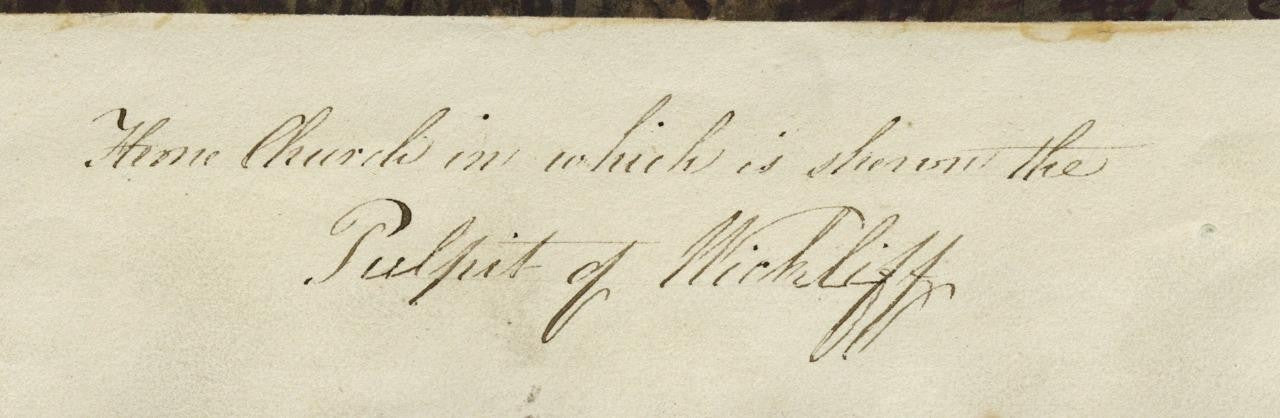 Herne Church in which is shewn the
Pulpit of Wickliff